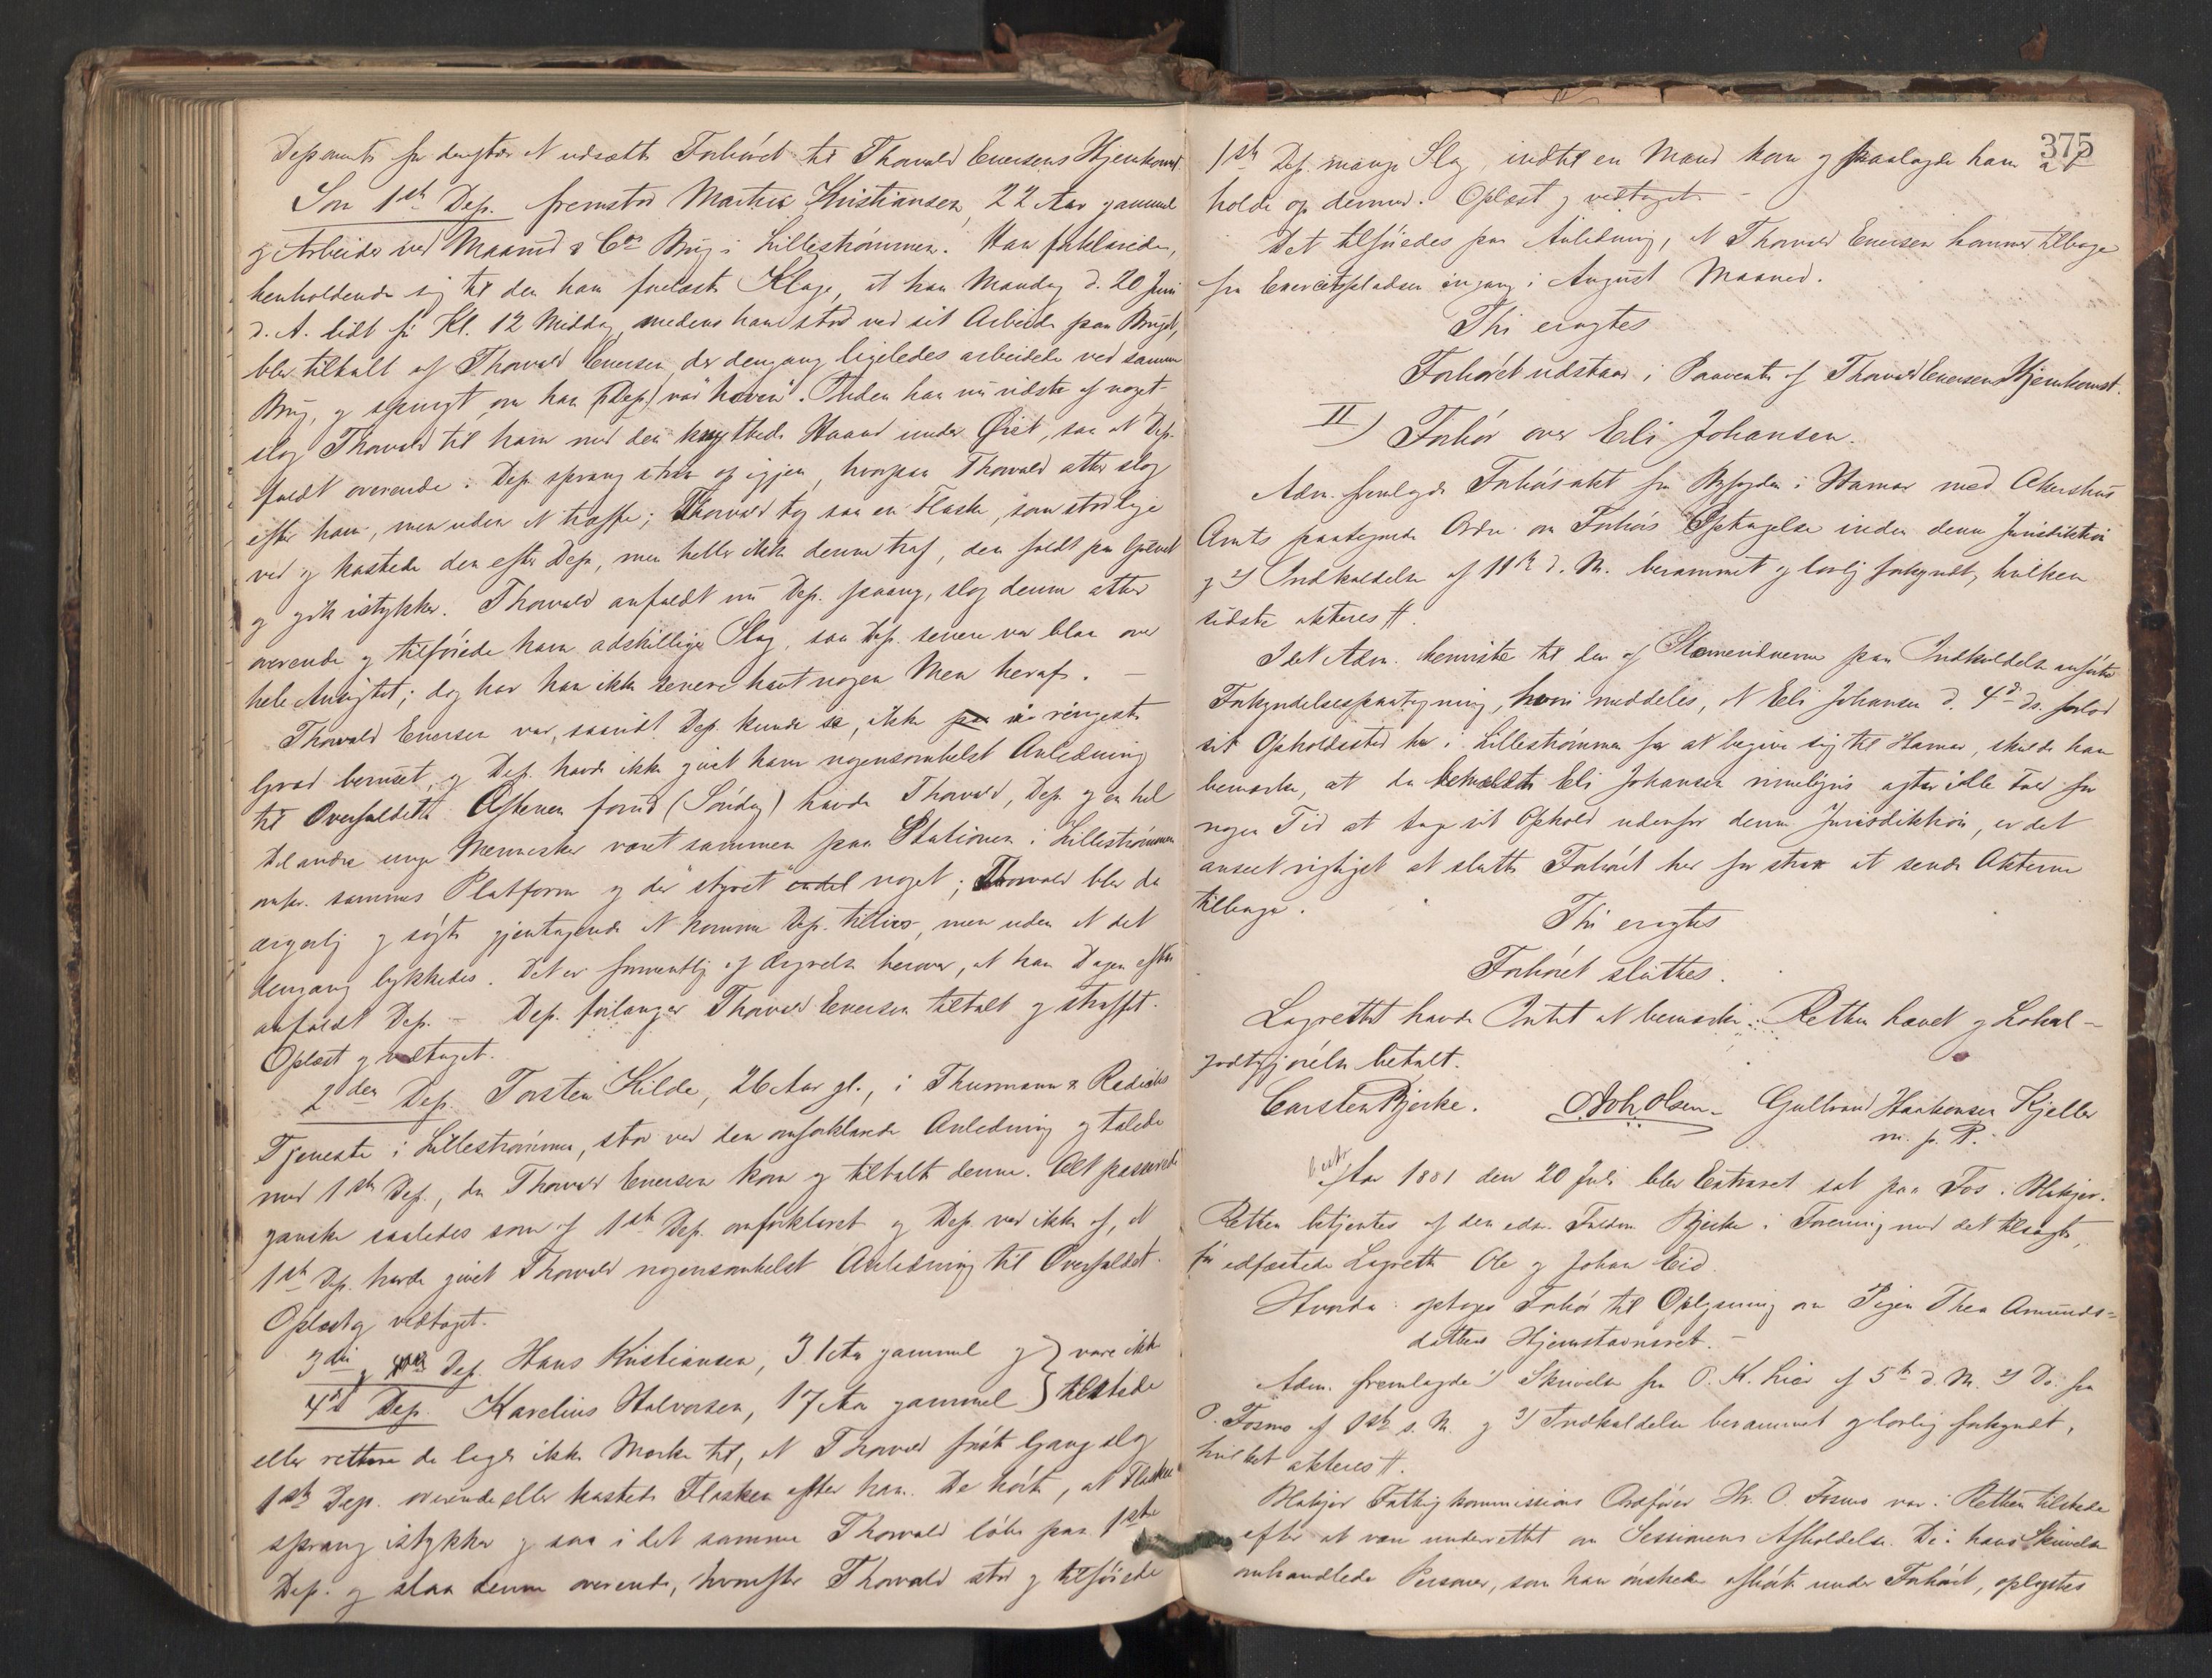 Deponents for derefter at udsætte Forhöret til Thorvald Eversens Hjemkomst.
Som 1ste Dep. fremstod Martin Kristiansen, 22 Aar gammel
og Arbeider ved Maanud & Co Brug i Lillestrømmen. Han forklarede,
henholdende sig til den ham forelæste Klage, at han Mandag d. 20 Juni
d. A. lidt før Kl. 12 Middag, medens han stod ved sit Arbeide paa Bruget,
blev tiltalt af Thorvald Eversen, der dengang ligeledes arbeidede ved samme
Brug, og spurgt om han (Dep.) var "hoven". Inden han nu vidste af noget
slog Thorvald til ham med den knyttede Haand under Øiet, saa at Dep.
faldt overende. Dep. sprang strax op igjen, hvorpaa Thorvald atter slog
efter ham, men uden at træffe; Thorvald tog saa en Flaske, som stod lige
ved og kastede den efter Dep, men heller ikke denne traf, den faldt paa Gulvet
og gik istykker. Thorvald anfaldt nu Dep. paany, slog denne atter
overende og tilføiede ham adskillige Slag, saa Dep. senere var blaa over
hele Ansigtet; dog har han ikke senere havt nogen Men heraf. –
Thorvald Eversen var, saavidt Dep. kunde se, ikke i ringeste
Grad beruset, og Dep. havde ikke givet ham nogensomhelst Anledning
til Overfaldet. Aftenen forud (Søndag) havde Thorvald, Dep. og en hel
Del andre unge Mennesker været sammen paa Stationen i Lillestrømmen
sammes Platform og der "styret" endel noget; Thorvald blev da
ærgerlig og søgte gjentagende at komme Dep. tillivs, men uden at det
dengang lykkedes. Det er formentlig af Ærgrelse herover, at han Dagen efter
anfaldt Dep. – Dep. forlanger Thorvald Eversen tiltalt og straffet.
Oplæst og vedtaget.
2den Dep. Torsten Kilde, 26 Aar gl., i Thurmann & Tjeneste i Lillestrømmen, stod ved den omforklarede Anledning og talede
med 1ste Dep., da Thorvald Eversen kom og tiltalte denne. Alt passerede
ganske saaledes som af 1ste Dep. omforklaret og Dep. ved ikke af, at
1ste Dep. havde givet Thorvald nogensomhelst Anledning til Overfaldet.
Oplæst og vedtaget.
3die og Dep. Hans Kristiansen, 31 Aar gammel og } vare ikke
4de Dep. Karelius Halvorsen, 17 Aar gammel } tilstede
eller rettere de lagde ikke Mærke til, at Thorvald første Gang slog
1ste Dep. overende eller kastede Flasken efter ham. De hørte, at Flasken
sprang istykker og saa i det samme Thorvald løbe paa 1ste
Dep. og slaa denne overende, hvorefter Thorvald stod og tilføiede
375
1ste Dep. mange Slag, indtil en Mand kom og paalagde ham at
holde op dermed. Oplæst og vedtaget –
Det tilføiedes paa Anledning, at Thorvald Eversen kommer tilbage
fra Exercitspladsen engang i August Maaned.
Thi eragtes
Forhöret udstaar i Paavente af Thorvald Eversens Hjemkomst.
II) Forhör over Eli Johansen.
Adm. fremlagde Forhörsakt fra Byfogden i Hamar med Akershus
Amts paategnede Ordre om Forhörs Optagelse inden denne Jurisdiktion
og 2) Indkaldelse af 11te d. M. berammet og lovlig forkyndt, hvilken
sidste akteres #.
Idet Adm. henviste til den af Stævnevidnerne paa Indkaldelsen anførte
Forkyndelsespaategning, hvori meddeles, at Eli Johansen d. 4de ds. forlod
sit Opholdssted her i Lillestrømmen for at begive sig til Hamar, skulde han
bemærke, at da Eli Johansen rimeligvis agter ialle Fald for
nogen Tid at tage sit Ophold udenfor denne Jurisdiktion, er det
anseet rigtigst at slutte Forhöret her for strax at sende Akterne
tilbage.
Thi eragtes
Forhöret sluttes.
Lagrettet havde Intet at bemærke. Retten hævet og Lokal-
godtgjørelse betalt.
Carsten Bjerke. Joh. Olsen. Gulbrand Haakonsen Kjeller
m. p. P.
Aar 1881 den 20 Juli blev Extraret sat paa Fos i Blakjer.
Retten betjentes af den edsv. Fuldm. Bjerke i Forening med det tilsagte,
før edfæstede Lagrette Ole og Johan Eid.
Hvorda: optoges Forhör til Oplysning om Pigen Thea Amunds-
datters Hjemstavnsret. –
Adm. fremlagde 1) Skrivelse fra O. K. Lier af 5te d. M. 2) Do. fra
O. Fosmo af 1ste s. M. og 3) Indkaldelse berammet og lovlig forkyndt,
hvilket akteres #.
Blakjer Fattigkommissions Ordfører Hr. O. Fosmo var i Retten tilstede
efter at være underrettet om Sessionens Afholdelse. De i hans Skrivelse
omhandlede Personer, som han ønskede afhørte under Forhöret, oplystes